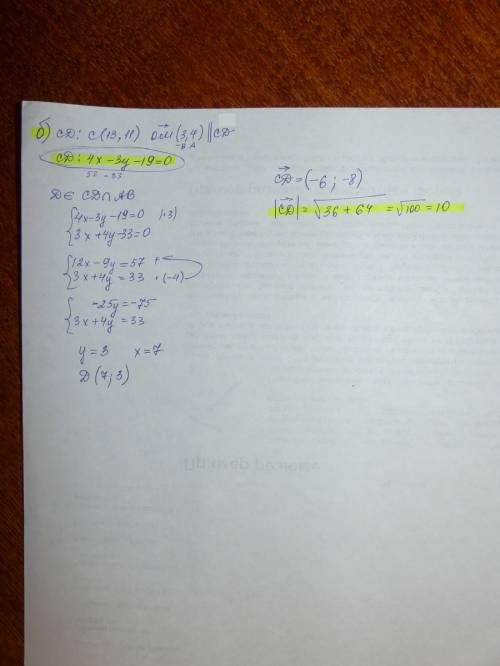 б) CD: C(13, 11) OM (3,4) || CD
-B A
CD: 4x - 3y - 19 = 0
52 - 33
D ∈ CD ∩ AB
4x - 3y - 19 = 0 (·3)
3x + 4y - 33 = 0
12x - 9y = 57 +
3x + 4y = 33 · (-4)
-25y = -75
3x + 4y = 33
y = 3 x = 7
D (7; 3)
CD = (-6; -8)
|CD| = √36 + 64 = √100 = 10